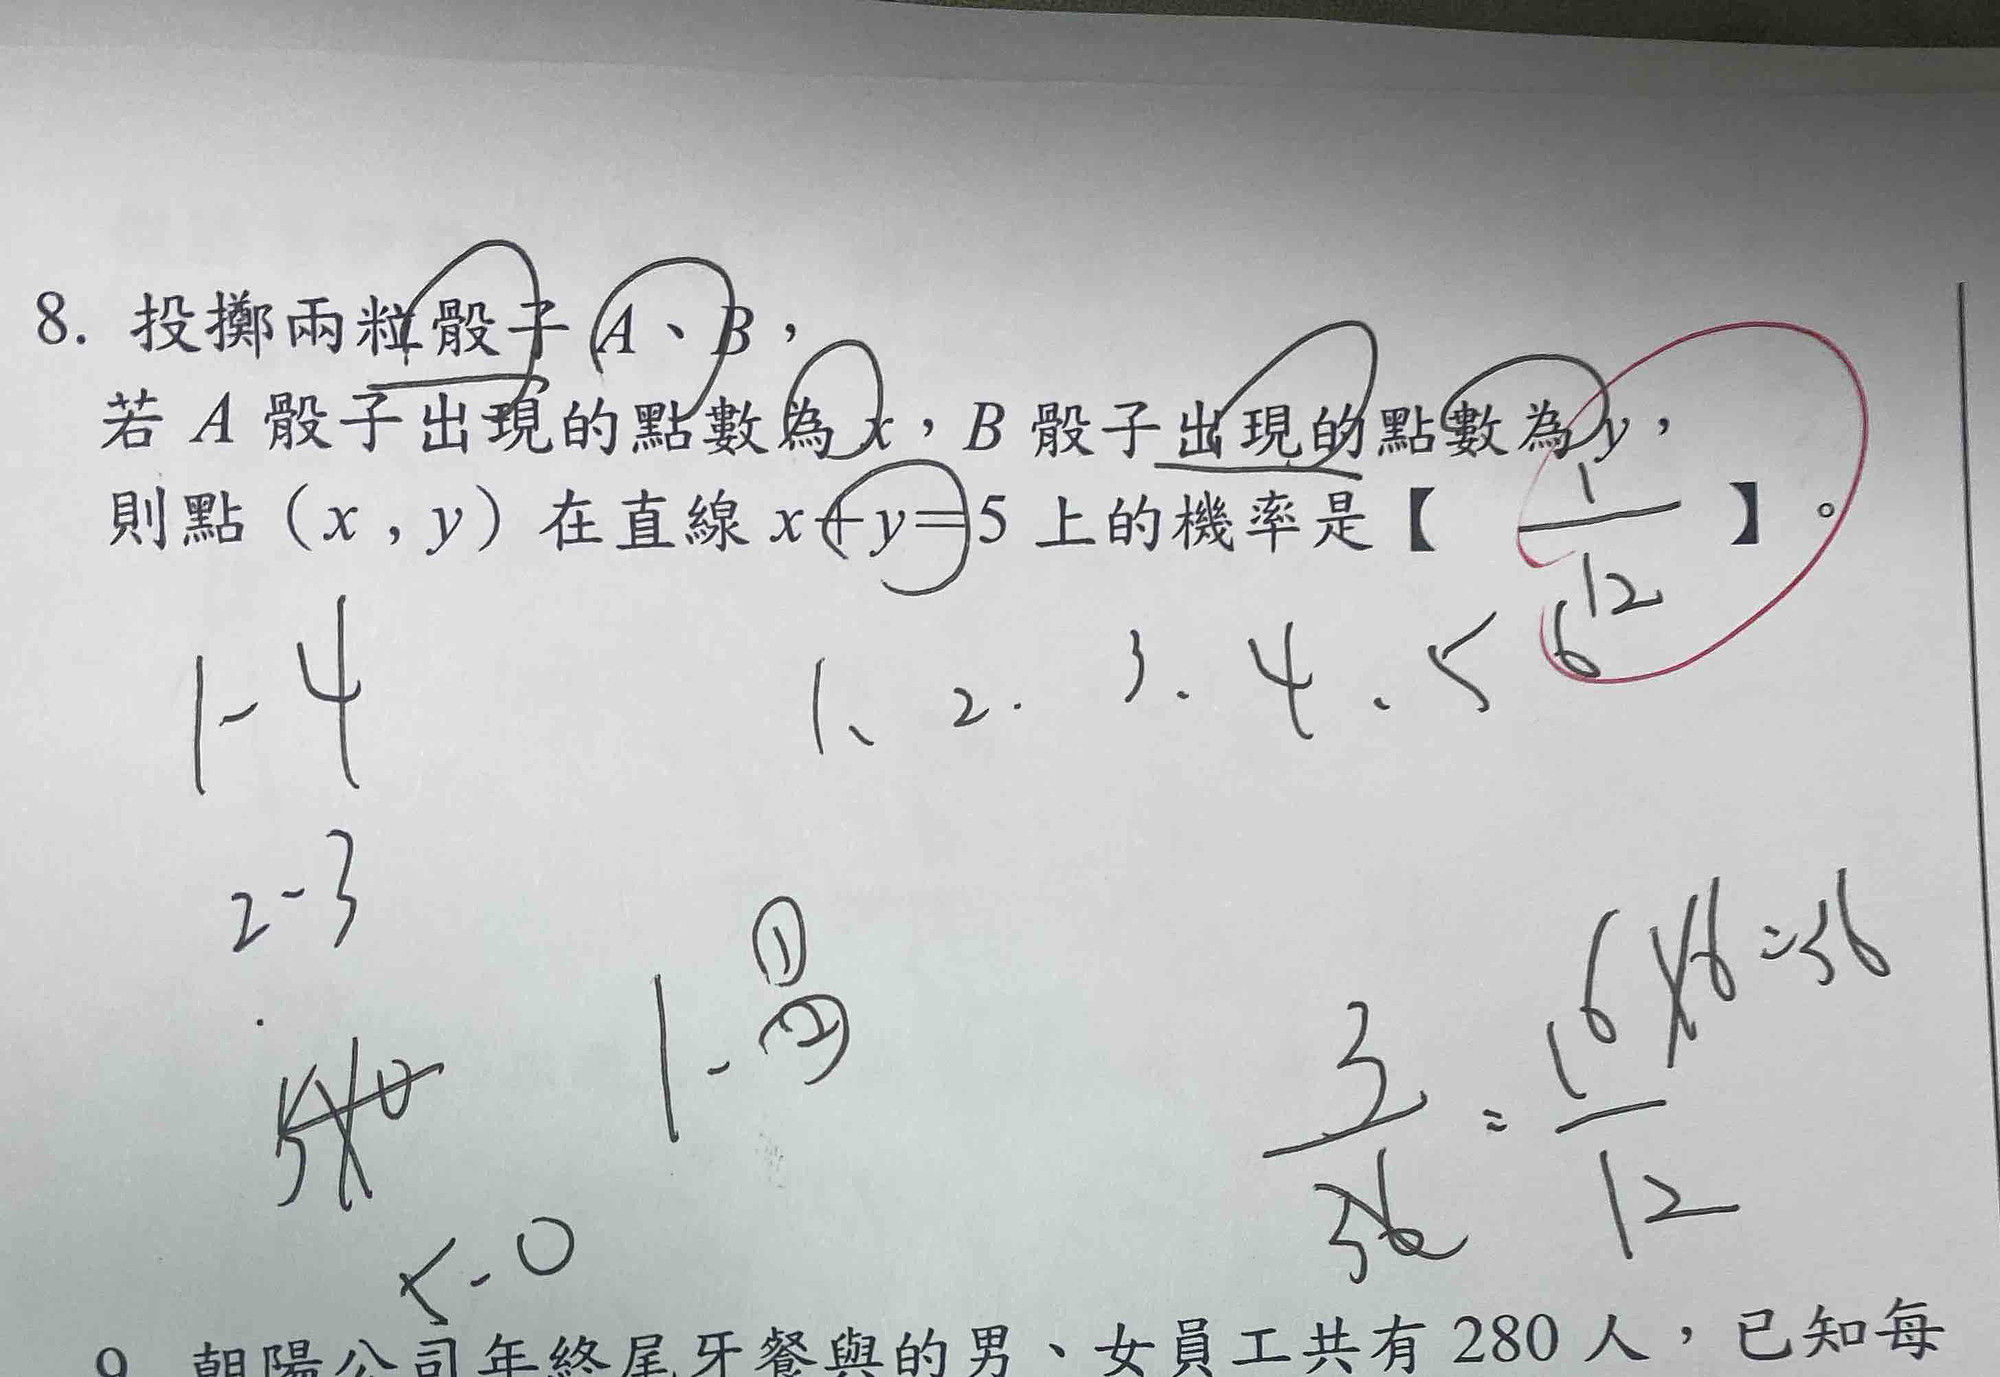 8. 投擲兩粒骰子 A、B，
若 A 骰子出現的點數為 x，B 骰子出現的點數為 y，
則點（x , y）在直線 x+y=5 上的機率是【 1/12 】。
1-4
1、2. 3. 4、5 6
2-3
1-① ②
6×6=36
3/36 = 1/12
5-0
9. 朝陽公司年終尾牙餐與的男、女員工共有 280 人，已知每